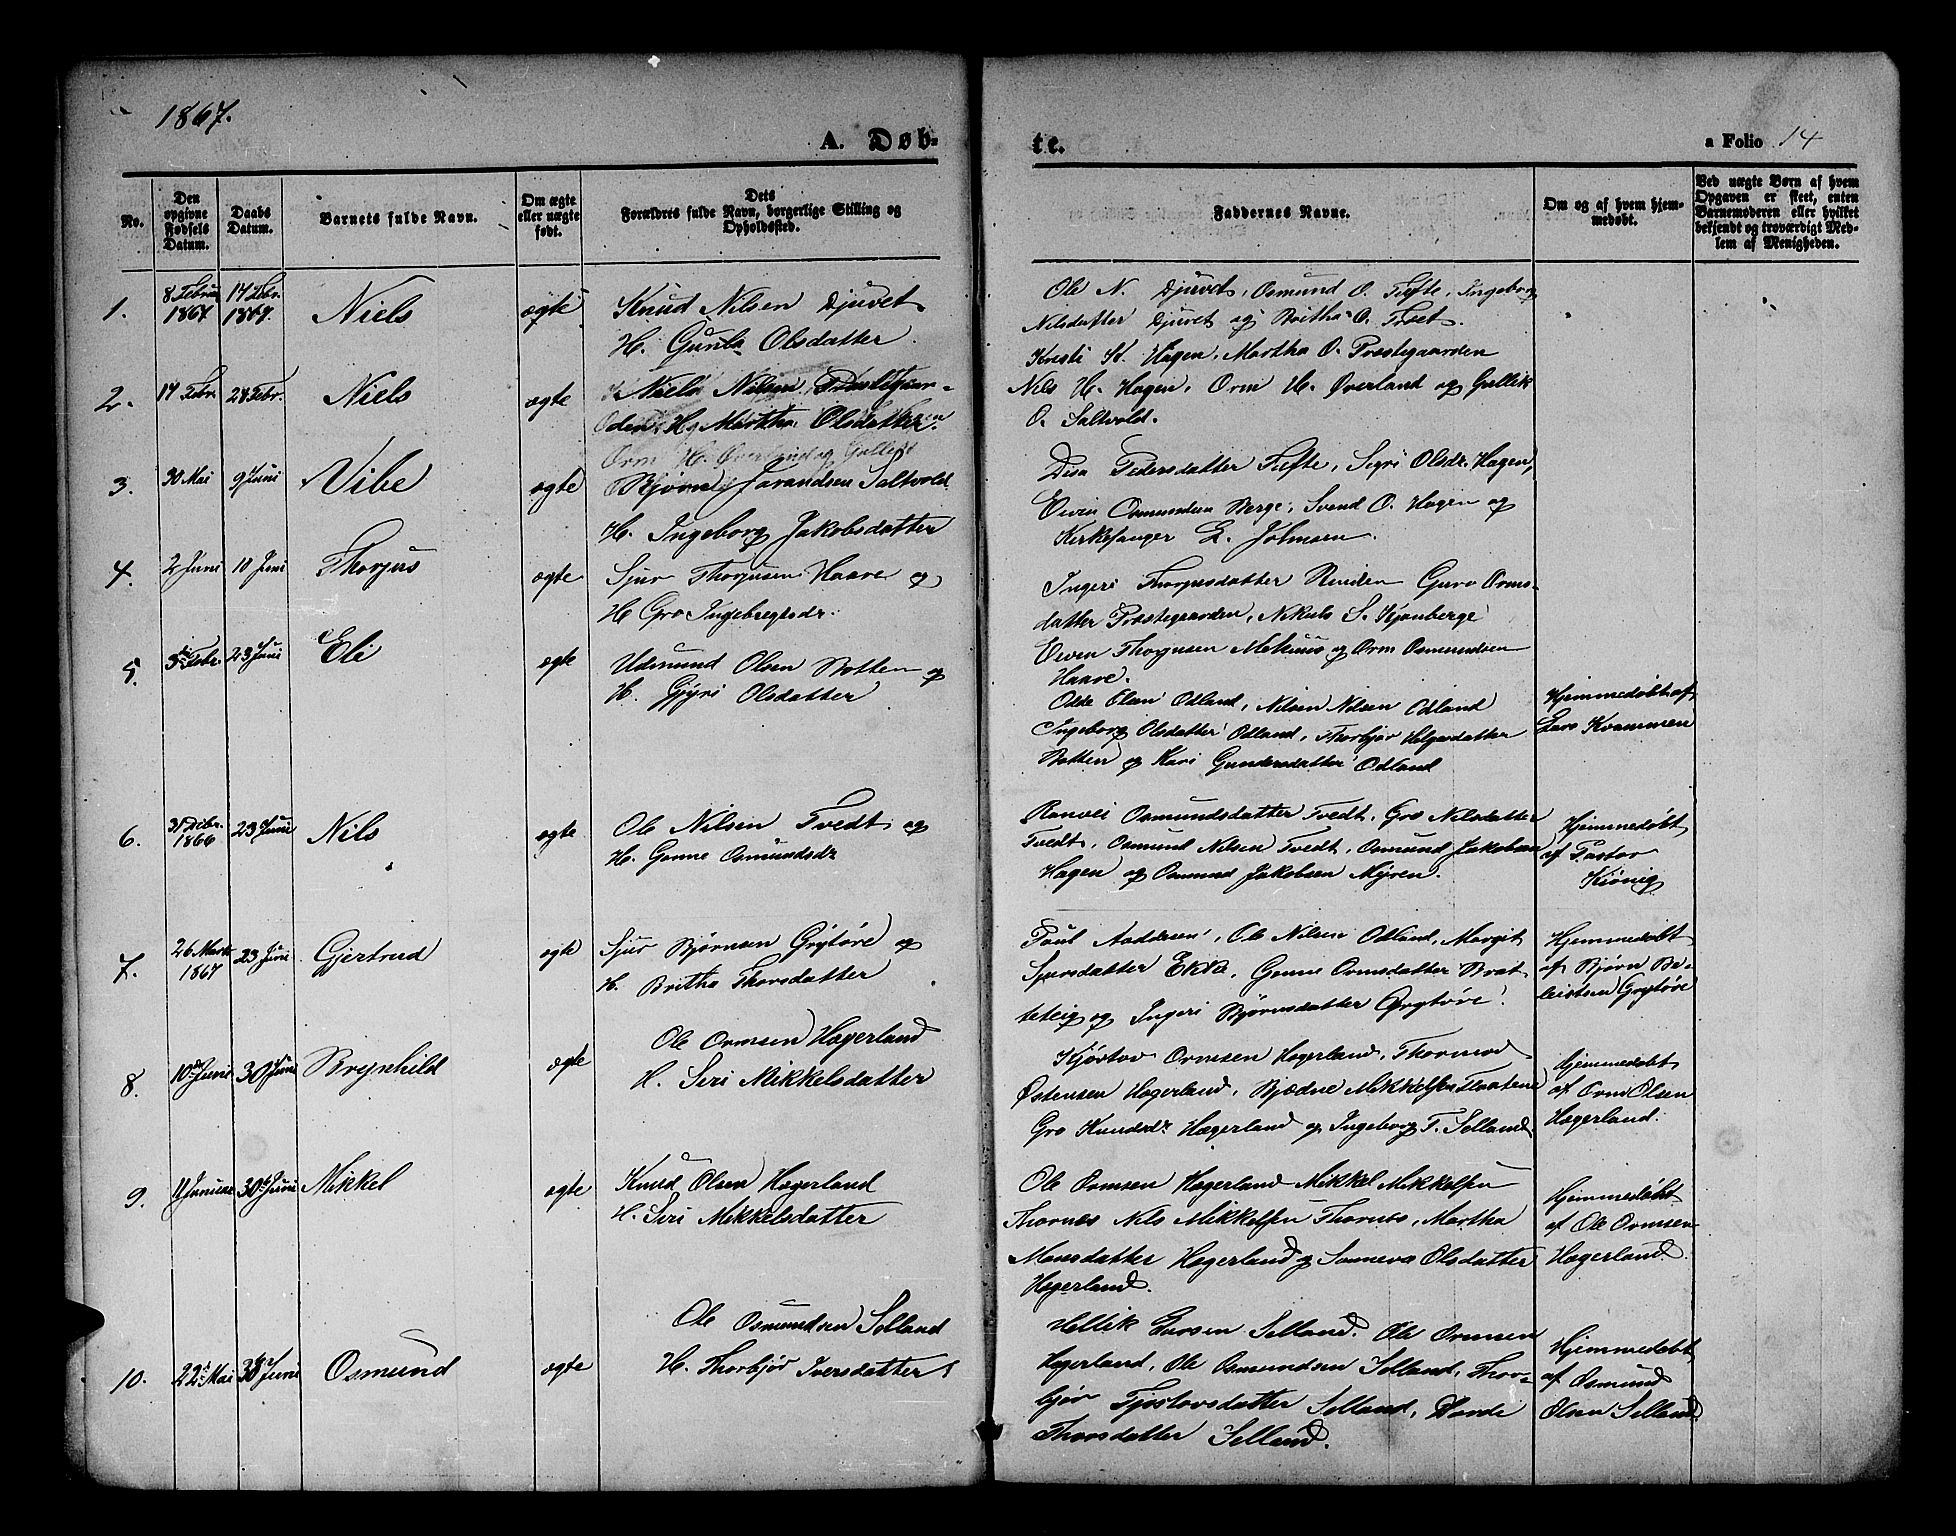 1867.
A. Døb-
te.
a Folio 14
No.
Den opgivne Fødsels Datum.
Daabs Datum.
Barnets fulde Navn.
Om ægte eller uægte født.
Dets Forældres fulde Navn, borgerlige Stilling og Opholdssted.
Faddernes Navne.
Om og af hvem hjemmedøbt.
Ved uægte Børn af hvem Opgaven er skeet, enten Barnemoderen eller hvilket bekjendt og troværdigt Medlem af Menigheden.
1. 8 Februar 1867 17 Febr. 1867. Niels ægte Knud Nilsen Djuvet
H. Gunla Olsdatter.
Ole N. Djuvet, Osmund O. Tufte, Ingeborg
Nilsdatter Djuvet og Britha O. Troet.
2. 17 Febr. 28 Febr. Niels ægte Niels Nilsen Præstegaar-
den H. Martha Olsdatter.
Kristi K. Hagen, Martha O. Præstegaarden
Nils H. Hagen, Orm H. Øverland og Gullik
O. Saltvold.
3. 30 Mai 9 Juni Vibe ægte Bjørn Tarandsen Saltvold
H. Ingeborg Jakobsdatter
Disa Pedersdatter Tufte, Sigri Olsdr. Hagen,
Eivin Osmundsen Berge, Svend O. Hagen og
Kirkesanger L. Johnsen.
4. 2 Juni 10 Juni Thorjus ægte Sjur Thorjusen Haave og
H. Gro Ingebregtsdr.
Ingeri Thorjusdatter Rinden Guro Orms-
datter Præstegaarden, Nikuls S. Kjønberge
Eiven Thorjusen Mehuus og Orm Osmundsen
Haave.
5. 5te Febr. 23 Juni Eli ægte Udsmund Olsen Botten og
H. Gjyri Olsdatter
Odde Olsen Odland, Nilsen Nilsen Odland
Ingeborg Olsdatter Odland, Thorbjør Helgesdatter
Botten og Kari Gundersdatter Odland
Hjemmedøbt af
Lars Kvammen
6. 31 Debr. 1866 23 Juni Nils ægte Ole Nilsen Tvedt og
H. Gonne Osmundsdr
Ranvei Osmundsdatter Tvedt, Gro Nilsdatter
Tvedt, Osmund Nilsen Tvedt, Osmund Jakobsen
Hagen og Osmund Jakobsen Myren.
Hjemmedøbt
af Pastor
Kiønig
7. 26 Marts 1867 23 Juni Gjertrud ægte Sjur Bjørnsen Grytøre og
H. Britha Thorsdatter
Poul Aaddesen, Ole Nilsen Odland, Margit
Sjursdatter Ekke, Gonne Ormsdatter Brat-
teteig og Ingeri Bjørnsdatter Grytøre.
Hjemmedøbt
af Bjørn Be-
leistsen Grytøre
8. 10de Juni 30te Juni Brynhild ægte Ole Ormsen Hagerland
H. Seri Mikkelsdatter
Kjøstov Ormsen Hagerland, Thormod
Østensen Hagerland, Bjædne Mikkelsen Flaatene
Gro Knudsdr. Hægerland og Ingeborg T. Selland
Hjemmedøbt
af Orm Olsen
Hagerland.
9. 11 Januar 30te Juni Mikkel ægte Knud Olsen Hagerland
H. Seri Mikkelsdatter
Ole Ormsen Hagerland Mikkel Mikkelsen
Thornes Nils Mikkelsen Thornes, Martha
Monsdatter Hagerland og Sonneva Olsdatter
Hagerland.
Hjemmedøbt
af Ole Ormsen
Hagerland.
10. 22de Mai 30te Juni Osmund ægte Ole Osmundsen Selland
H. Thorbjør Iversdatter
Hellik Larsen Selland. Ole Ormsen
Hagerland, Ole Osmundsen Selland, Thor-
bjør Tjøstovsdatter Selland, Dordi
Thorsdatter Selland.
Hjemmedøbt
af Osmund
Olsen Selland